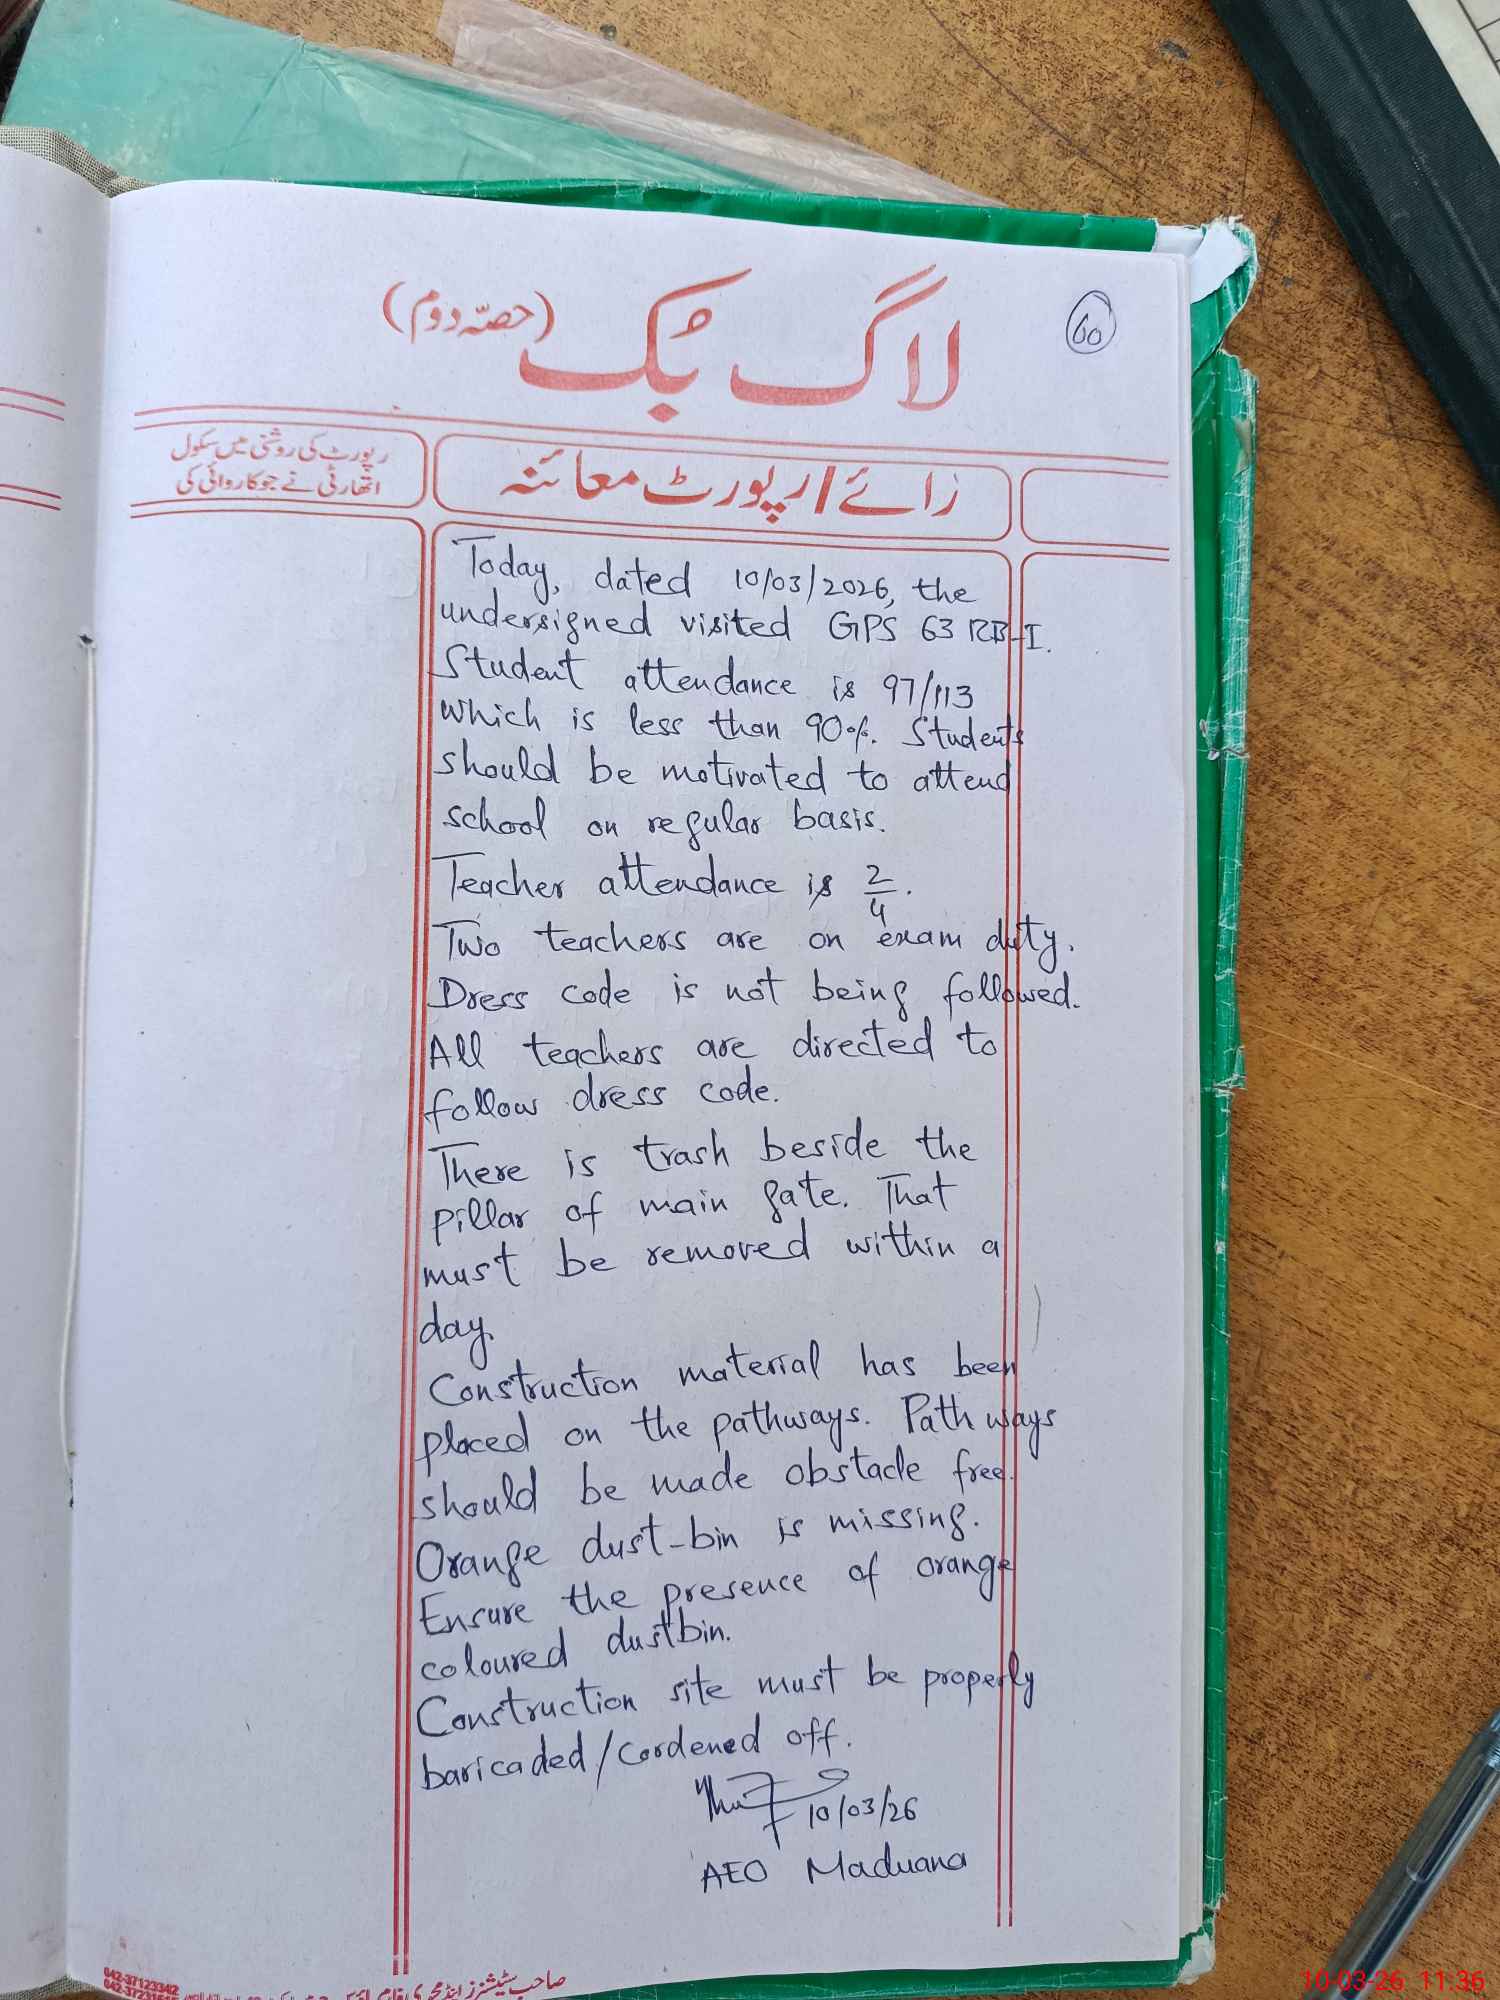 لاگ بُک (حصّہ دوم)
60
رپورٹ کی روشنی میں سکول
اتھارٹی نے جو کاروائی کی
رائے/رپورٹ معائنہ
Today, dated 10/03/2026, the
undersigned visited GPS 63 RB-I.
Student attendance is 97/113
which is less than 90%. Students
should be motivated to attend
school on regular basis.
Teacher attendance is 2/4.
Two teachers are on exam duty.
Dress code is not being followed.
All teachers are directed to
follow dress code.
There is trash beside the
pillar of main gate. That
must be removed within a
day.
Construction material has been
placed on the pathways. Path ways
should be made obstacle free.
Orange dust-bin is missing.
Ensure the presence of orange
coloured dustbin.
Construction site must be properly
baricaded/Cordened off.
10/03/26
AEO Maduana
042-37123342
صاحب سٹیشنرز اینڈ
10-03-26 11:36